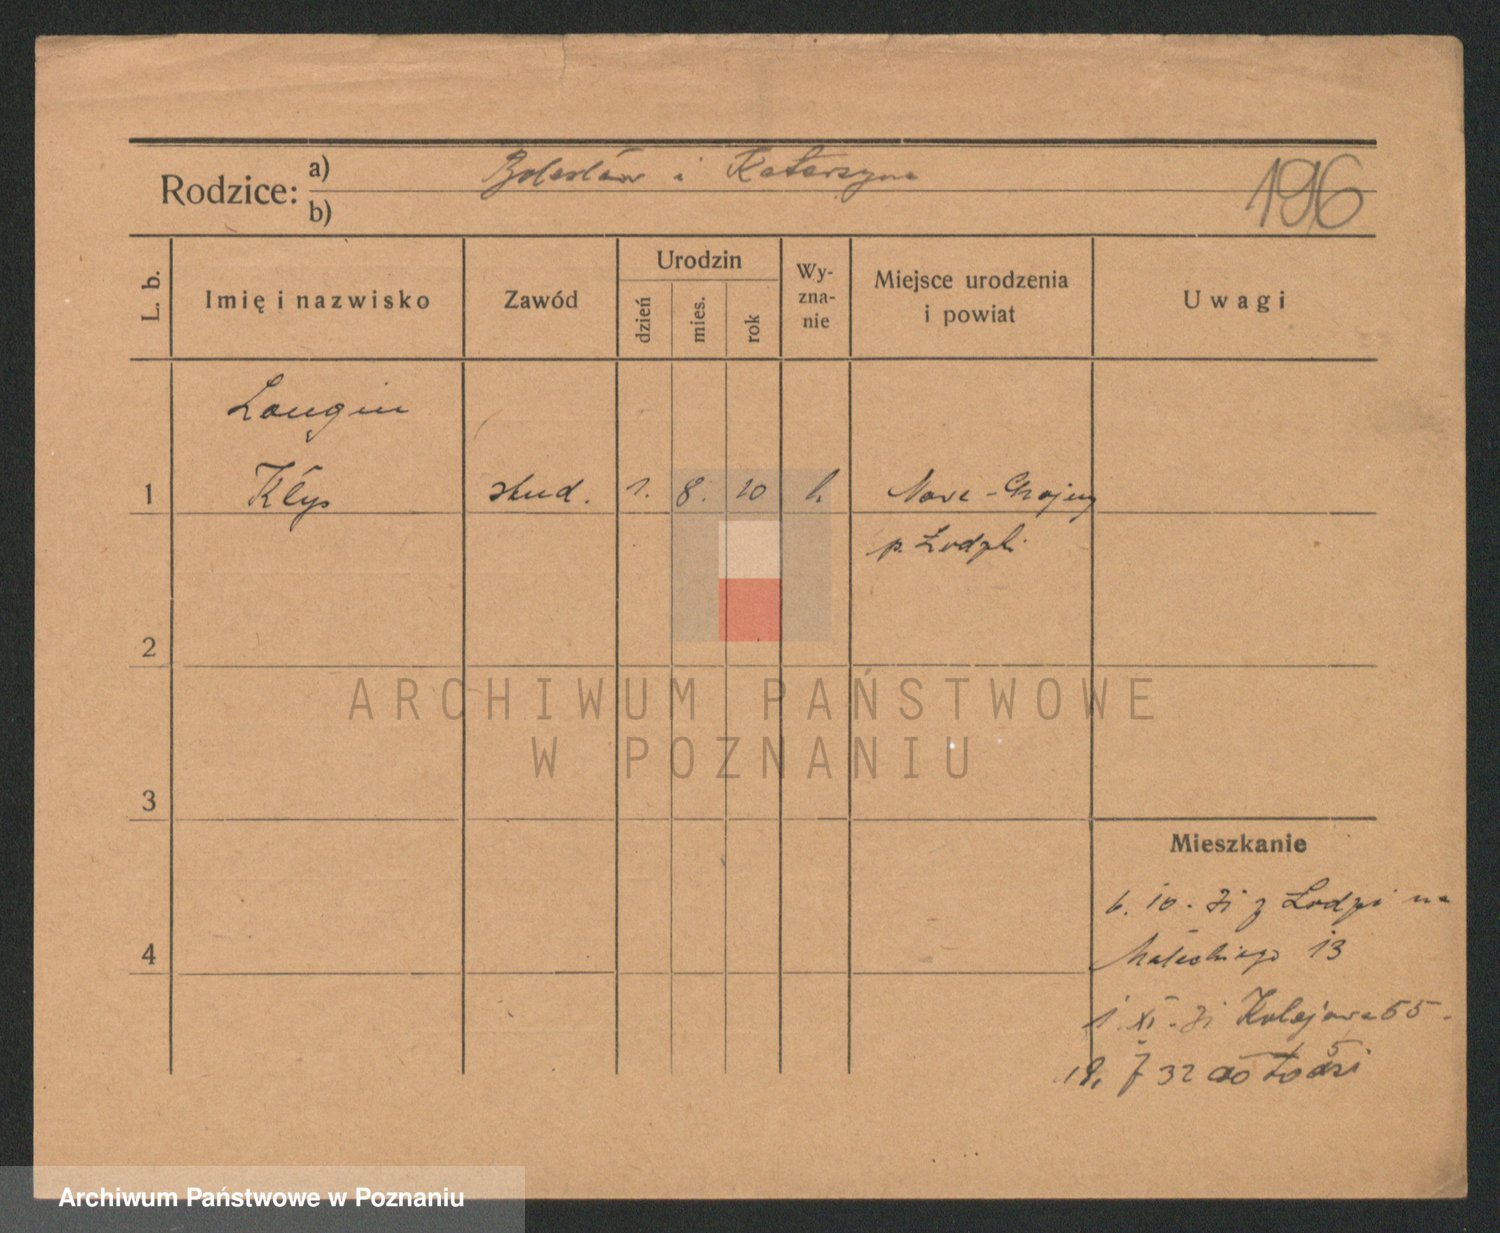 Rodzice: a) Bolesław i Katarzyna
b)
196
L. b.
Imię i nazwisko
Zawód
Urodzin
dzień
mies.
rok
Wy-
zna-
nie
Miejsce urodzenia
i powiat
Uwagi
Longin
1 Kłys stud. 1. 8. 10 Nowe-
p. Łodzki
2
ARCHIWUM PAŃSTWOWE
W POZNANIU
3
Mieszkanie
6. 10. 31 z Łodzi na
4 Małeckiego 13
1. XI. 31 Kolejowa 55.
19. 32 do Łodzi
Archiwum Państwowe w Poznaniu